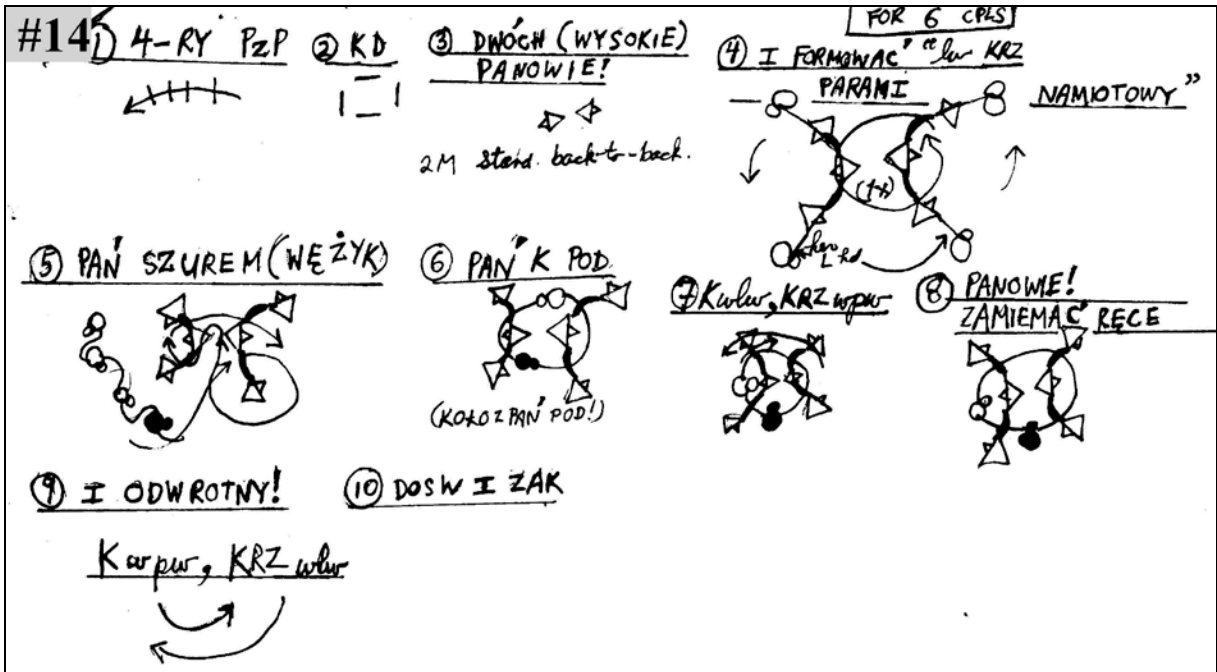 #14
FOR 6 CPLS
① 4-RY PzP
② KD
③ DWÓCH (WYSOKIE)
PANOWIE!
2M stand back-to-back.
④ I FORMOWAĆ "lw KRZ
PARAMI NAMIOTOWY"
L hd
⑤ PAŃ SZUREM (WĘŻYK)
⑥ PAŃ K POD
(KOŁO Z PAŃ POD!)
⑦ Kwlw, KRZ wpw
⑧ PANOWIE!
ZAMIEMAĆ RĘCE
⑨ I ODWROTNY!
K wpw, KRZ wlw
⑩ DOSW I ZAK